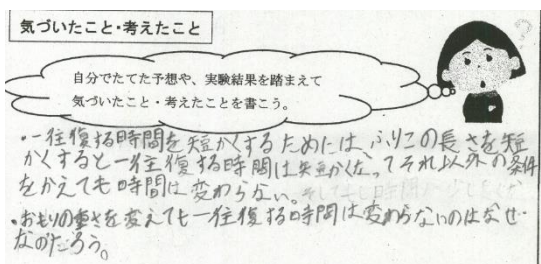 気づいたこと・考えたこと
?
自分でたてた予想や、実験結果を踏まえて
気づいたこと・考えたことを書こう。
・一往復する時間を短かくするためには、ふりこの長さを短
かくすると一往復する時間は短かくなってそれ以外の条件
をかえても時間は変わらない。
・おもりの重さを変えても一往復する時間は変わらないのはなぜ
なのだろう。